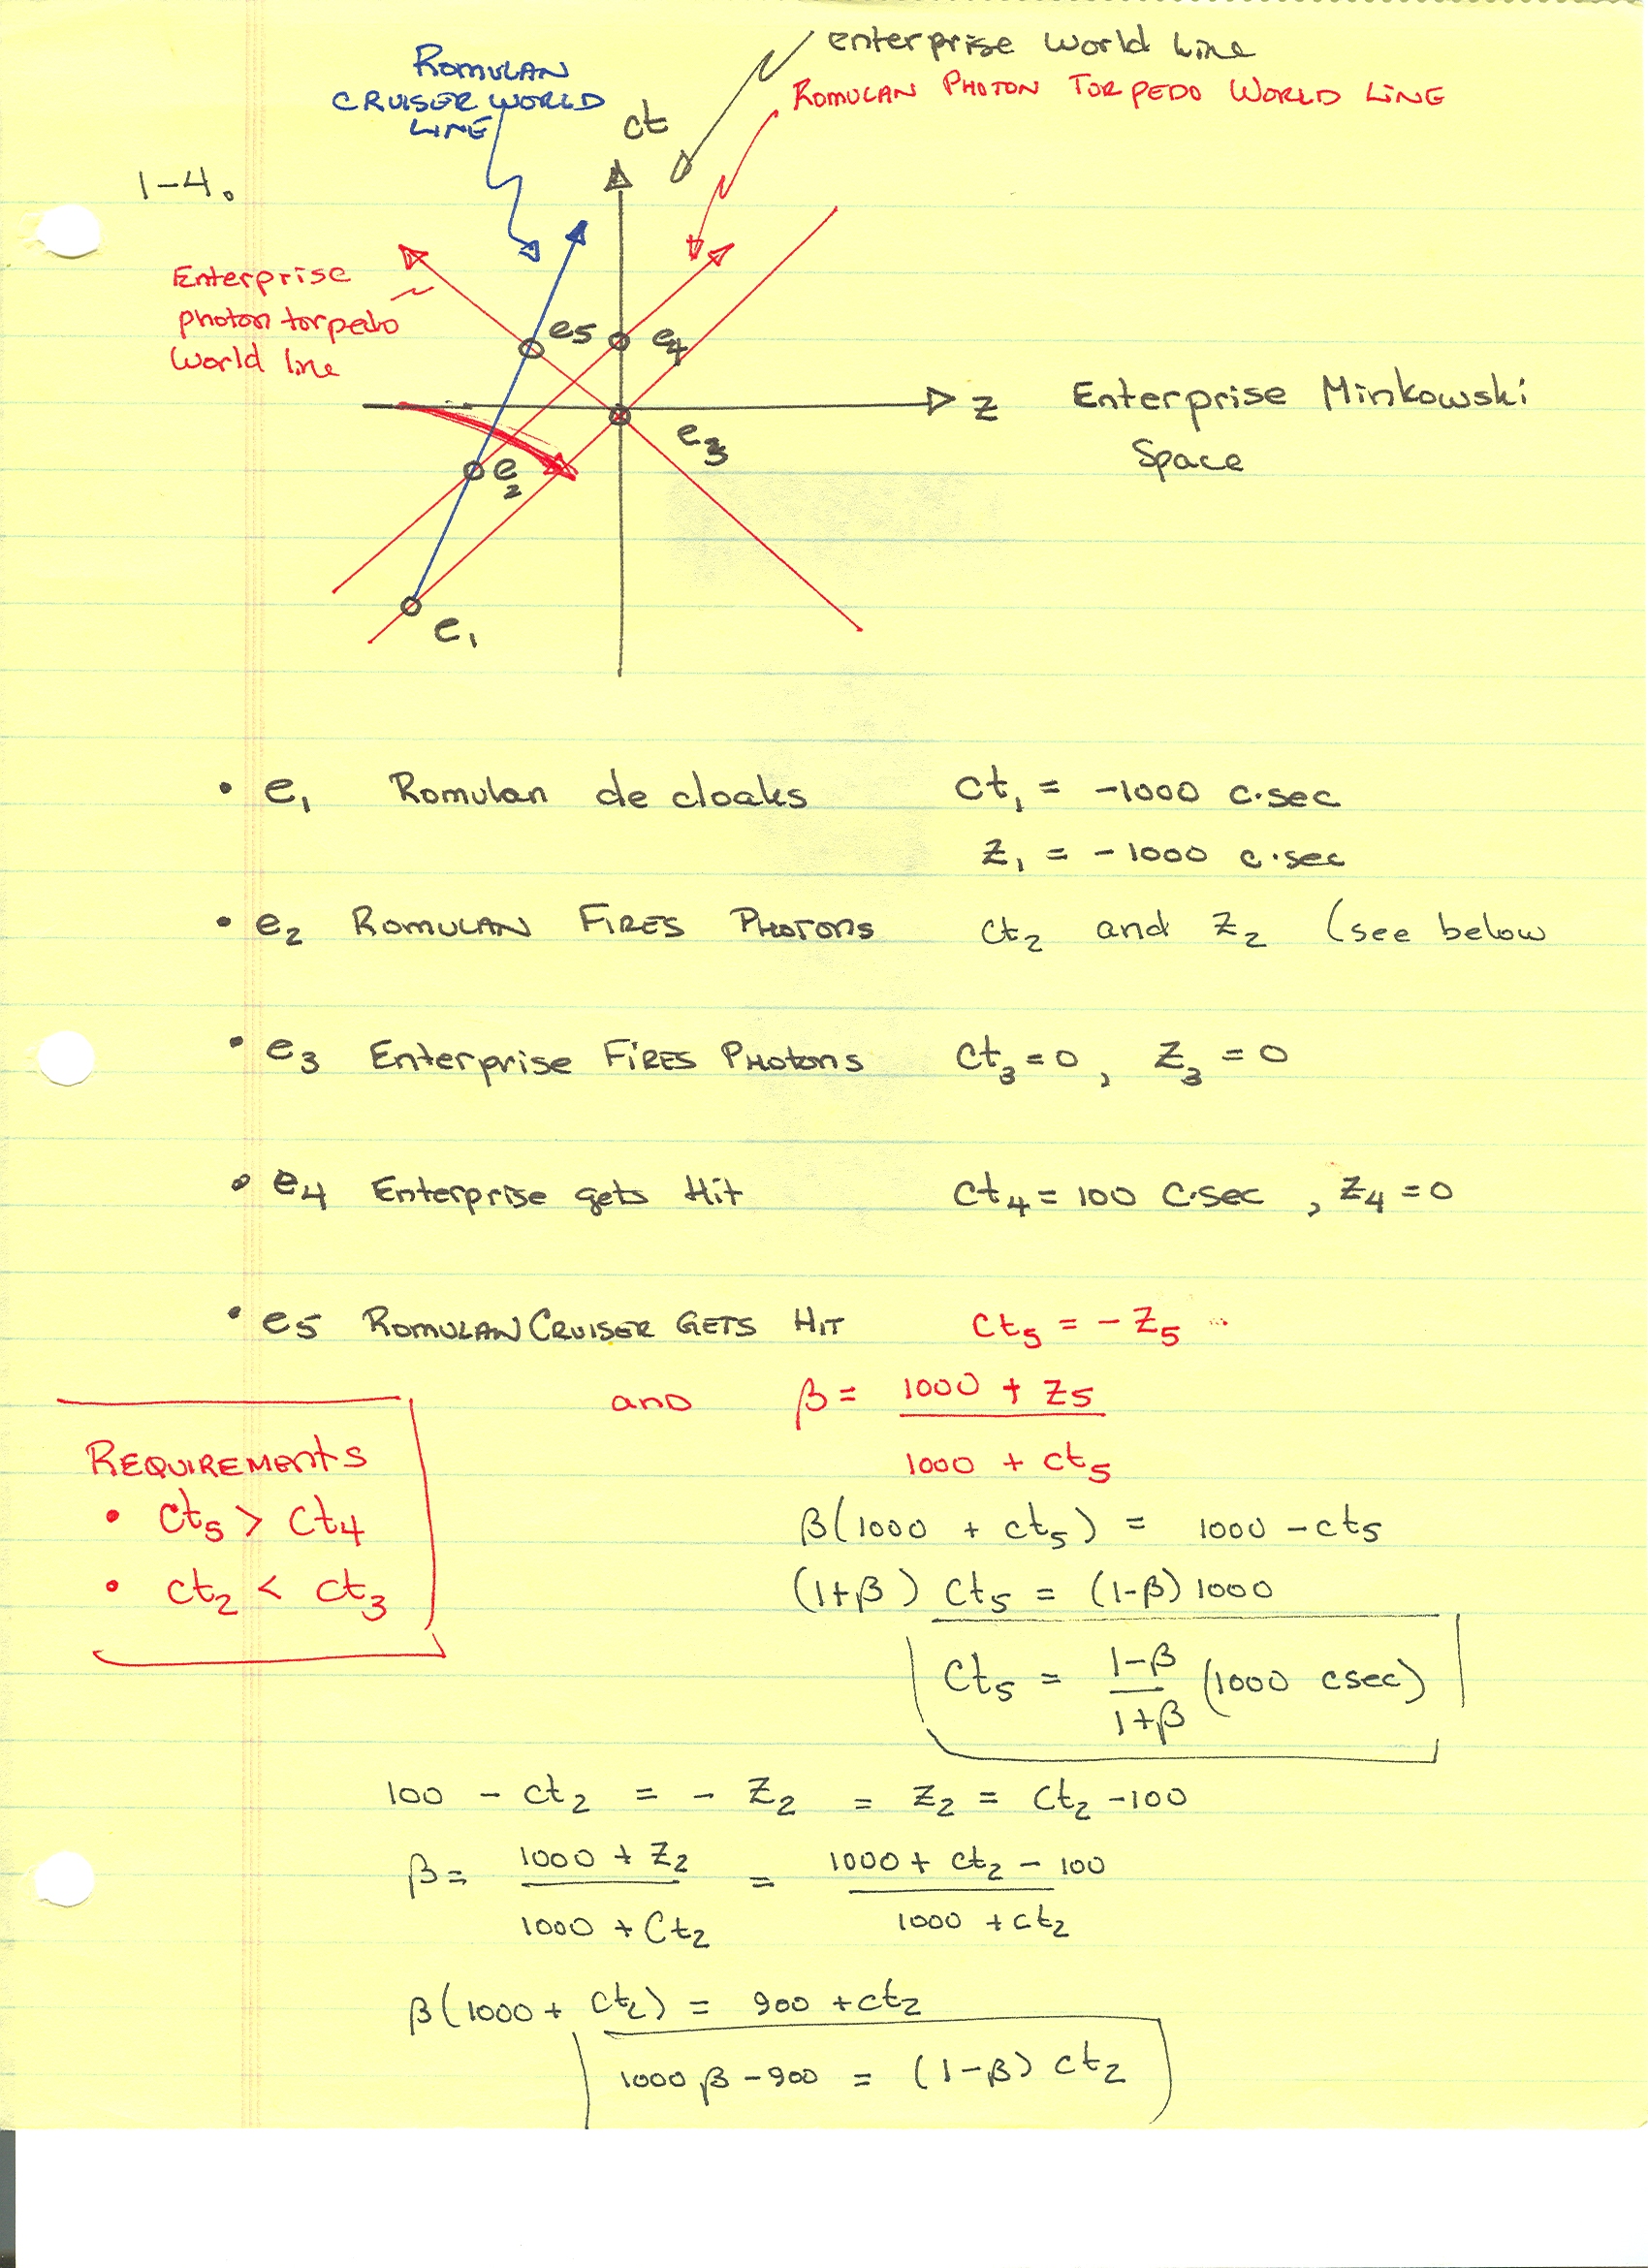 enterprise world line
ROMULAN PHOTON TORPEDO WORLD LINE
ROMULAN
CRUISER WORLD
LINE
ct
1-4.
Enterprise
photon torpedo
World line
e5
e4
z
Enterprise Minkowski
Space
e3
e2
e1
• e1 Romulan de cloaks ct1 = -1000 c·sec
z1 = -1000 c·sec
• e2 ROMULAN FIRES PHOTONS ct2 and z2 (see below
• e3 Enterprise FIRES PHOTONS ct3 = 0, z3 = 0
• e4 Enterprise gets Hit ct4 = 100 c·sec, z4 = 0
• e5 ROMULAN CRUISER GETS HIT ct5 = - z5
and β = (1000 + z5) / (1000 + ct5)
REQUIREMENTS
• ct5 > ct4
• ct2 < ct3
β(1000 + ct5) = 1000 - ct5
(1+β) ct5 = (1-β) 1000
ct5 = (1-β)/(1+β) (1000 csec)
100 - ct2 = - z2 = z2 = ct2 - 100
β = (1000 + z2) / (1000 + ct2) = (1000 + ct2 - 100) / (1000 + ct2)
β(1000 + ct2) = 900 + ct2
1000β - 900 = (1-β) ct2